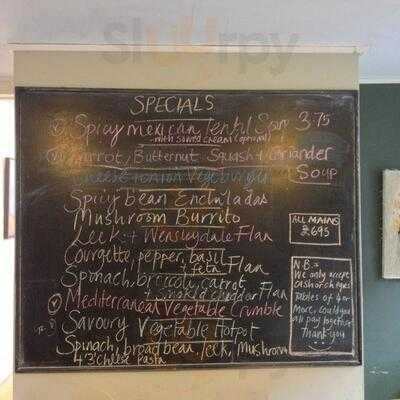 Sluurpy
SPECIALS
V Spicy mexican lentil Soup 3.75
with soured cream (optional)
V Carrot, Butternut Squash + Coriander
Soup
Cheese + onion Vegeburger
Spicy bean Enchiladas
Mushroom Burrito
ALL MAINS
£6.95
Leek + Wensleydale Flan
Courgette, pepper, basil
+ feta Flan
Spinach, broccoli, carrot
+ smoked cheddar Flan
V Mediterranean Vegetable Crumble
V Savoury Vegetable Hotpot
Spinach, broad bean, leek, Mushroom
+ 3 Cheese Pasta
N.B.
We only accept
cash or cheques
Tables of 4 or
more, could you
all pay together
Thank-you